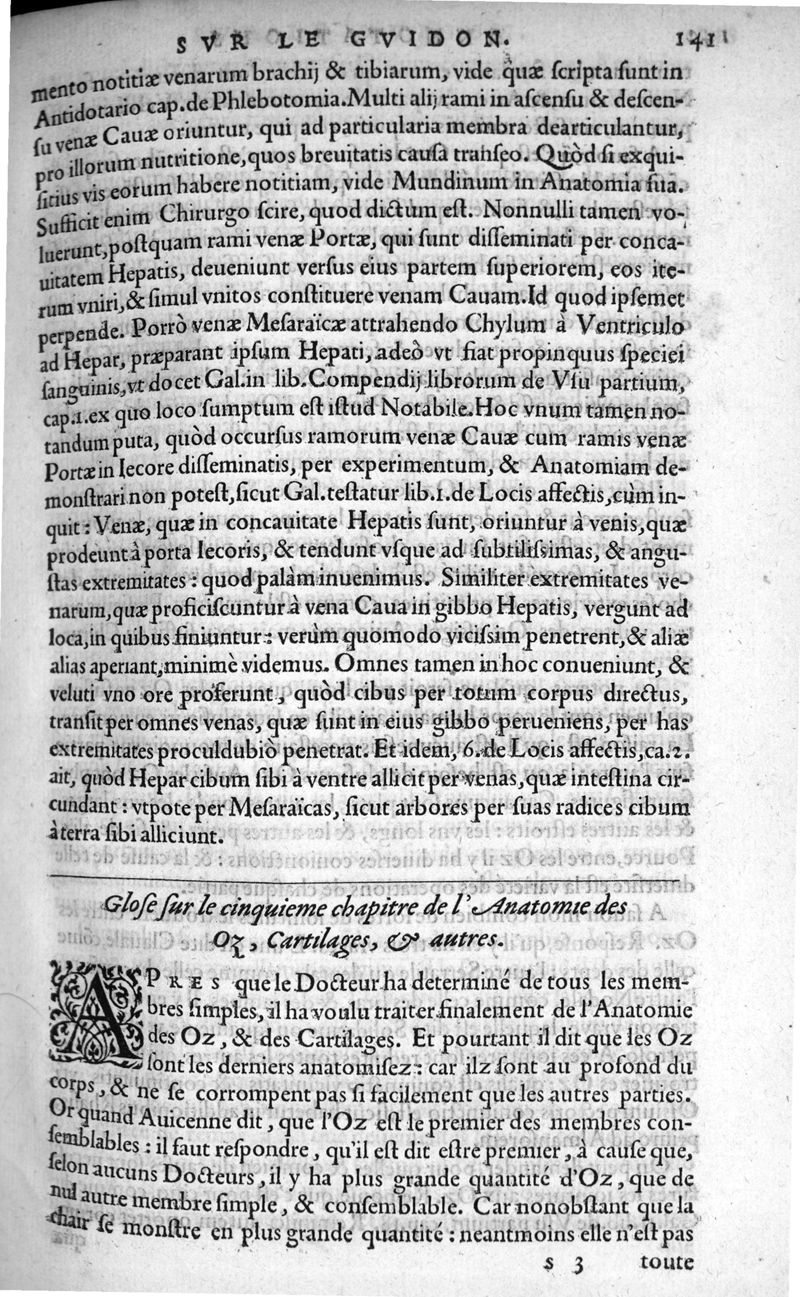 SVR LE GVIDON. 141
mento notitiæ venarum brachij & tibiarum, vide quæ ſcripta ſunt in
Antidotario cap.de Phlebotomia.Multi alij rami in aſcenſu & deſcen-
ſu venæ Cauæ oriuntur, qui ad particularia membra dearticulantur,
pro illorum nutritione,quos breuitatis cauſa tranſeo. Quòd ſi exqui-
ſitius vis eorum habere notitiam, vide Mundinum in Anatomia ſua.
Sufficit enim Chirurgo ſcire, quod dictum eſt. Nonnulli tamen vo-
luerunt,poſtquam rami venæ Portæ, qui ſunt diſſeminati per conca-
uitatem Hepatis, deueniunt verſus eius partem ſuperiorem, eos ite-
rum vniri,& ſimul vnitos conſtituere venam Cauam.Id quod ipſemet
perpende. Porrò venæ Meſaraïcæ attrahendo Chylum à Ventriculo
ad Hepar, præparant ipſum Hepati, adeò vt fiat propinquus ſpeciei
ſanguinis,vt docet Gal.in lib.Compendij librorum de Vſu partium,
cap.1.ex quo loco ſumptum eſt iſtud Notabile.Hoc vnum tamen no-
tandum puta, quòd occurſus ramorum venæ Cauæ cum ramis venæ
Portæ in Iecore diſſeminatis, per experimentum, & Anatomiam de-
monſtrari non poteſt,ſicut Gal.teſtatur lib.1.de Locis affectis,cùm in-
quit : Venæ, quæ in concauitate Hepatis ſunt, oriuntur à venis,quæ
prodeunt à porta Iecoris, & tendunt vſque ad ſubtiliſsimas, & angu-
ſtas extremitates : quod palàm inuenimus. Similiter extremitates ve-
narum,quæ proficiſcuntur à vena Caua in gibbo Hepatis, vergunt ad
loca,in quibus finiuntur : verùm quomodo viciſsim penetrent,& aliæ
alias aperiant,minimè videmus. Omnes tamen in hoc conueniunt, &
veluti vno ore proferunt, quòd cibus per totum corpus directus,
tranſit per omnes venas, quæ ſunt in eius gibbo perueniens, per has
extremitates proculdubiò penetrat. Et idem, 6. de Locis affectis,ca.2.
ait, quòd Hepar cibum ſibi à ventre allicit per venas,quæ inteſtina cir-
cundant : vtpote per Meſaraïcas, ſicut arbores per ſuas radices cibum
à terra ſibi alliciunt.
Gloſe ſur le cinquieme chapitre de l'Anatomie des
Oz, Cartilages, & autres.
APRES que le Docteur ha determiné de tous les mem-
bres ſimples, il ha voulu traiter finalement de l'Anatomie
des Oz, & des Cartilages. Et pourtant il dit que les Oz
ſont les derniers anatomiſez : car ilz ſont au profond du
corps, & ne ſe corrompent pas ſi facilement que les autres parties.
Or quand Auicenne dit, que l'Oz eſt le premier des membres con-
ſemblables : il faut reſpondre, qu'il eſt dit eſtre premier, à cauſe que,
ſelon aucuns Docteurs, il y ha plus grande quantité d'Oz, que de
nul autre membre ſimple, & conſemblable. Car nonobſtant que la
chair ſe monſtre en plus grande quantité : neantmoins elle n'eſt pas
s 3 toute